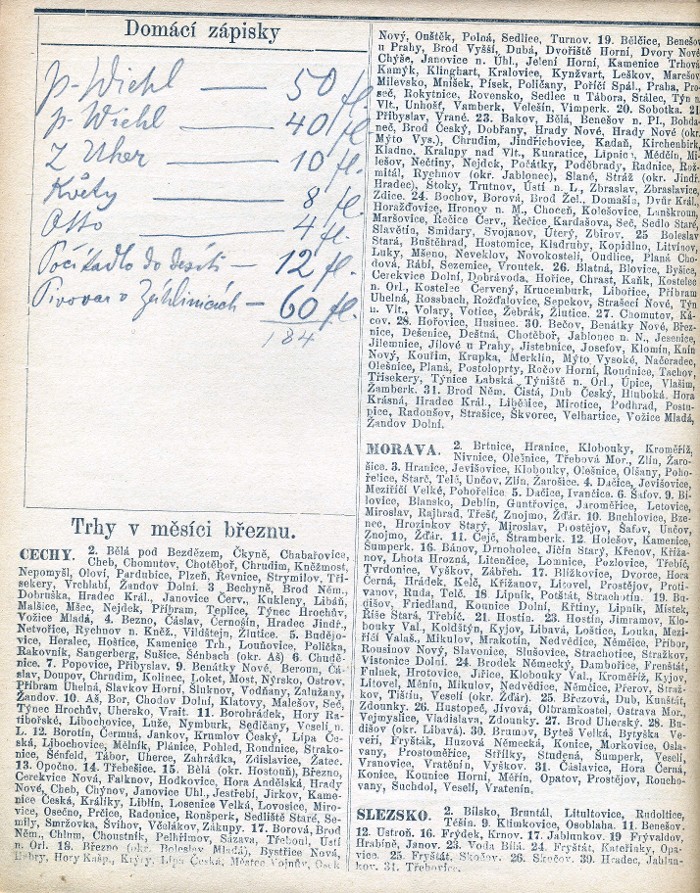 Domácí zápisky
p. Wiehl — 50 fl.
p. Wiehl — 40 fl.
Z Uher — 10 fl.
Květy — 8 fl.
Otto — 4 fl.
Počítadlo do desíti — 12 fl.
Pivovar v Záhlinicích — 60 fl.
184
Trhy v měsíci březnu.
ČECHY. 2. Bělá pod Bezdězem, Čkyně, Chabařovice,
Cheb, Chomutov, Chotěboř, Chrudim, Kněžmost,
Nepomyšl, Oloví, Pardubice, Plzeň, Řevnice, Strymilov, Tři-
sekery, Vrchlabí, Žandov Dolní. 3. Bechyně, Brod Něm.,
Dobruška, Hradec Král., Janovice Červ., Kukleny, Libáň,
Malšice, Mšec, Nejdek, Příbram, Teplice, Týnec Hrochův,
Vožice Mladá. 4. Bezno, Čáslav, Černošín, Hradec Jindř.,
Netvořice, Rychnov n. Kněž., Vildštejn, Žlutice. 5. Budějo-
vice, Heralec, Hoštice, Kamenice Trh., Lounovice, Polička,
Rakovník, Sangerberg, Sušice, Šenbach (okr. Aš) 6. Chudě-
nice. 7. Popovice, Přibyslav. 9. Benátky Nové, Beroun, Čá-
slav, Doupov, Chrudim, Kolinec, Loket, Most, Nýrsko, Ostrov,
Příbram Uhelná, Slavkov Horní, Sluknov, Vodňany, Zalužany,
Žandov. 10. Aš, Bor, Chodov Dolní, Klatovy, Malešov, Seč,
Týnec Hrochův, Uhersko, Vrait. 11. Borohrádek, Hory Ra-
tibořské, Libochovice, Luže, Nymburk, Sedlčany, Veselí n.
L. 12. Borotín, Čermná, Jankov, Krumlov Český, Lípa Če-
ská, Libochovice, Mělník, Plánice, Pohled, Roudnice, Strako-
nice, Šénfeld, Tábor, Uherce, Zahrádka, Zdislavice, Žatec.
13. Opočno. 14. Třebešice. 15. Bělá (okr. Hostouň), Březno,
Cerekvice Nová, Falknov, Hodkovice, Hora Andělská, Hrady
Nové, Cheb, Chýnov, Janovice Uhl., Jestřebí, Jirkov, Kame-
nice Česká, Králíky, Liblín, Losenice Velká, Lovosice, Miro-
vice, Osečno, Prčice, Radonice, Ronšperk, Sedliště Staré, Se-
mily, Smržovka, Švihov, Včelákov, Zákupy. 17. Borová, Brod
Něm., Chlum, Choustník, Pelhřimov, Sázava, Třeboň, Ústí
n. Orl. 18. Březno (okr. Boleslav Mladá), Bystřice Nová,
Habry, Hory Kašp., Kryry, Lípa Česká, Městec Vojnův,
Nový, Ouštěk, Polná, Sedlice, Turnov. 19. Bělčice, Benešov
u Prahy, Brod Vyšší, Dubá, Dvořiště Horní, Dvory Nové
Chýše, Janovice n. Úhl., Jelení Horní, Kamenice Trhová
Kamýk, Klinghart, Kralovice, Kynžvart, Leškov, Mareš
Milevsko, Mníšek, Písek, Poličany, Poříčí Spál., Praha, Pro-
seč, Rokytnice, Rovensko, Sedlec u Tábora, Stálec, Týn n.
Vlt., Unhošť, Vamberk, Velešín, Vimperk. 20. Sobotka. 21.
Přibyslav, Vrané. 23. Bakov, Bělá, Benešov n. Pl., Bohda-
neč, Brod Český, Dobřany, Hrady Nové, Hrady Nové (okr.
Mýto Vys.), Chrudim, Jindřichovice, Kadaň, Kirchenbirk,
Kladno, Kralupy nad Vlt., Kunratice, Lipnic, Méděín, Mi-
lešov, Nečtiny, Nejdek, Počátky, Poděbrady, Radnice, Rož-
mitál, Rychnov (okr. Jablonec), Slané, Stráž (okr. Jindř.
Hradec), Stoky, Trutnov, Ústí n. L., Zbraslav, Zbraslavice,
Zdice. 24. Bochov, Borová, Brod Žel., Domašín, Dvůr Král.,
Horažďovice, Hronov n. M., Choceň, Kolešovice, Lanškroun,
Maršovice, Řečice Červ., Řečice Kardašova, Seč, Sedlo Staré,
Slavětín, Smidary, Svojanov, Úterý, Zbirov. 25 Boleslav
Stará, Buštěhrad, Hostomice, Kladruby, Kopidlno, Litvínov,
Luky, Mšeno, Neveklov, Novokostelí, Oudlice, Planá Cho-
dová, Rábí, Sezemice, Vroutek. 26. Blatná, Blovice, Byšice,
Cerekvice Dolní, Dobrávoda, Hořice, Chrast, Kaňk, Kostelec
n. Orl., Kostelec Červený, Krucenburk, Libořice, Příbram
Uhelná, Rossbach, Rožďalovice, Sepekov, Strašecí Nové, Týn
n. Vlt., Volary, Votice, Žebrák, Žlutice. 27. Chomutov, Ká-
cov. 28. Hořovice, Husinec. 30. Bečov, Benátky Nové, Břez-
nice, Dešenice, Deštná, Chotěboř, Jablonec n. N., Jesenice,
Jilemnice, Jílové u Prahy, Jistebnice, Josefov, Klomín, Knín
Nový, Kouřim, Krupka, Merklín, Mýto Vysoké, Načeradec,
Olešnice, Planá, Postoloprty, Ročov Horní, Roudnice, Tachov,
Třísekery, Týnice Labská, Týniště n. Orl., Úpice, Vlašim,
Žamberk. 31. Brod Něm., Čistá, Dub Český, Hluboká, Hora
Krásná, Hradec Král., Liběšice, Mirotice, Podhrad, Postu-
pice, Radoušov, Strašice, Škvorec, Velhartice, Vožice Mladá,
Žandov Dolní.
MORAVA. 2. Brtnice, Hranice, Klobouky, Kroměříž,
Nivnice, Olešnice, Třebová Mor., Zlín, Žaro-
šice. 3. Hranice, Jevišovice, Klobouky, Olešnice, Olšany, Poho-
řelice, Stare, Telč, Unčov, Zlín, Žarošice. 4. Dačice, Jevišovice,
Meziříčí Velké, Pohořelice 5. Dačice, Ivančice. 6. Šafov. 9. Bí-
lovice, Blansko, Deblín, Guntřovice, Jaroměřice, Letovice,
Miroslav, Rajhrad, Třešť, Znojmo, Žďár. 10. Buchlovice, Bze-
nec, Hrozinkov Starý, Miroslav, Prostějov, Šafov, Unčov,
Znojmo, Žďár. 11. Čejč, Štramberk. 12. Holešov, Kamenice,
Šumperk. 16. Bánov, Drnoholec, Jičín Starý, Křenov, Křiža-
nov, Lhota Hrozná, Litenčice, Lomnice, Pozlovice, Třebíč,
Tvrdonice, Vyškov, Zábřeh. 17. Blížkovice, Dvorce, Hora
Černá, Hrádek, Kelč, Křižanov, Litovel, Prostějov, Proti-
vanov, Ruda, Telč. 18 Lipník, Potštát, Strachotín. 19. Bu-
dišov, Friedland, Kounice Dolní, Křtiny, Lipník, Místek,
Žíše Stará, Třebíč. 21. Hostín. 23. Hostín, Jimramov, Klo-
bouky Val., Koldštýn, Kyjov, Libavá, Loštice, Louka, Mezi-
říčí Valaš., Mikulov, Mrakotín, Nedvědice, Němčice, Příbor,
Rousinov Nový, Slavonice, Slušovice, Strachotice, Stražkov,
Vistonice Dolní. 24. Brodek Německý, Dambořice, Frenštát,
Fulnek, Hrotovice, Jiřice, Klobouky Val., Kroměříž, Kyjov,
Litovel, Měnín, Mikulov, Nedvědice, Němčice, Přerov, Straž-
kov, Tištín, Veselí (okr. Žďár). 25. Březová, Dub, Kunštát,
Zdounky. 26. Hustopeč, Jívová, Olbramkostel, Ostrava Mor.,
Vejmyslice, Vladislava, Zdounky. 27. Brod Uherský. 28. Bu-
dišov (okr. Libavá). 30. Brumov, Byteš Velká, Bytýška Ve-
veří, Fryšták, Huzová Německá, Konice, Morkovice, Osla-
vany, Prostoměřice, Střílky, Studená, Šumperk, Veselí,
Vranovice, Vratěnín, Vyškov. 31. Čáslavice, Hora Černá,
Konice, Kounice Horní, Měřín, Opatov, Prostějov, Roucho-
vany, Suchdol, Veselí, Vratenín.
SLEZSKO. 2. Bílsko, Bruntál, Litultovice, Rudoltice,
Těšín. 9. Klimkovice, Osoblaha. 11. Benešov.
12. Ustroň. 16. Frýdek, Krnov. 17. Jablunkov. 19 Frývaldov,
Hrabině, Janov. 23. Voda Bílá. 24. Fryštát, Kateřinky, Opa-
vice. 25. Fryštát, Skočov. 26. Skočov. 30. Hradec, Jablun-
kov. 31. Třebovice.